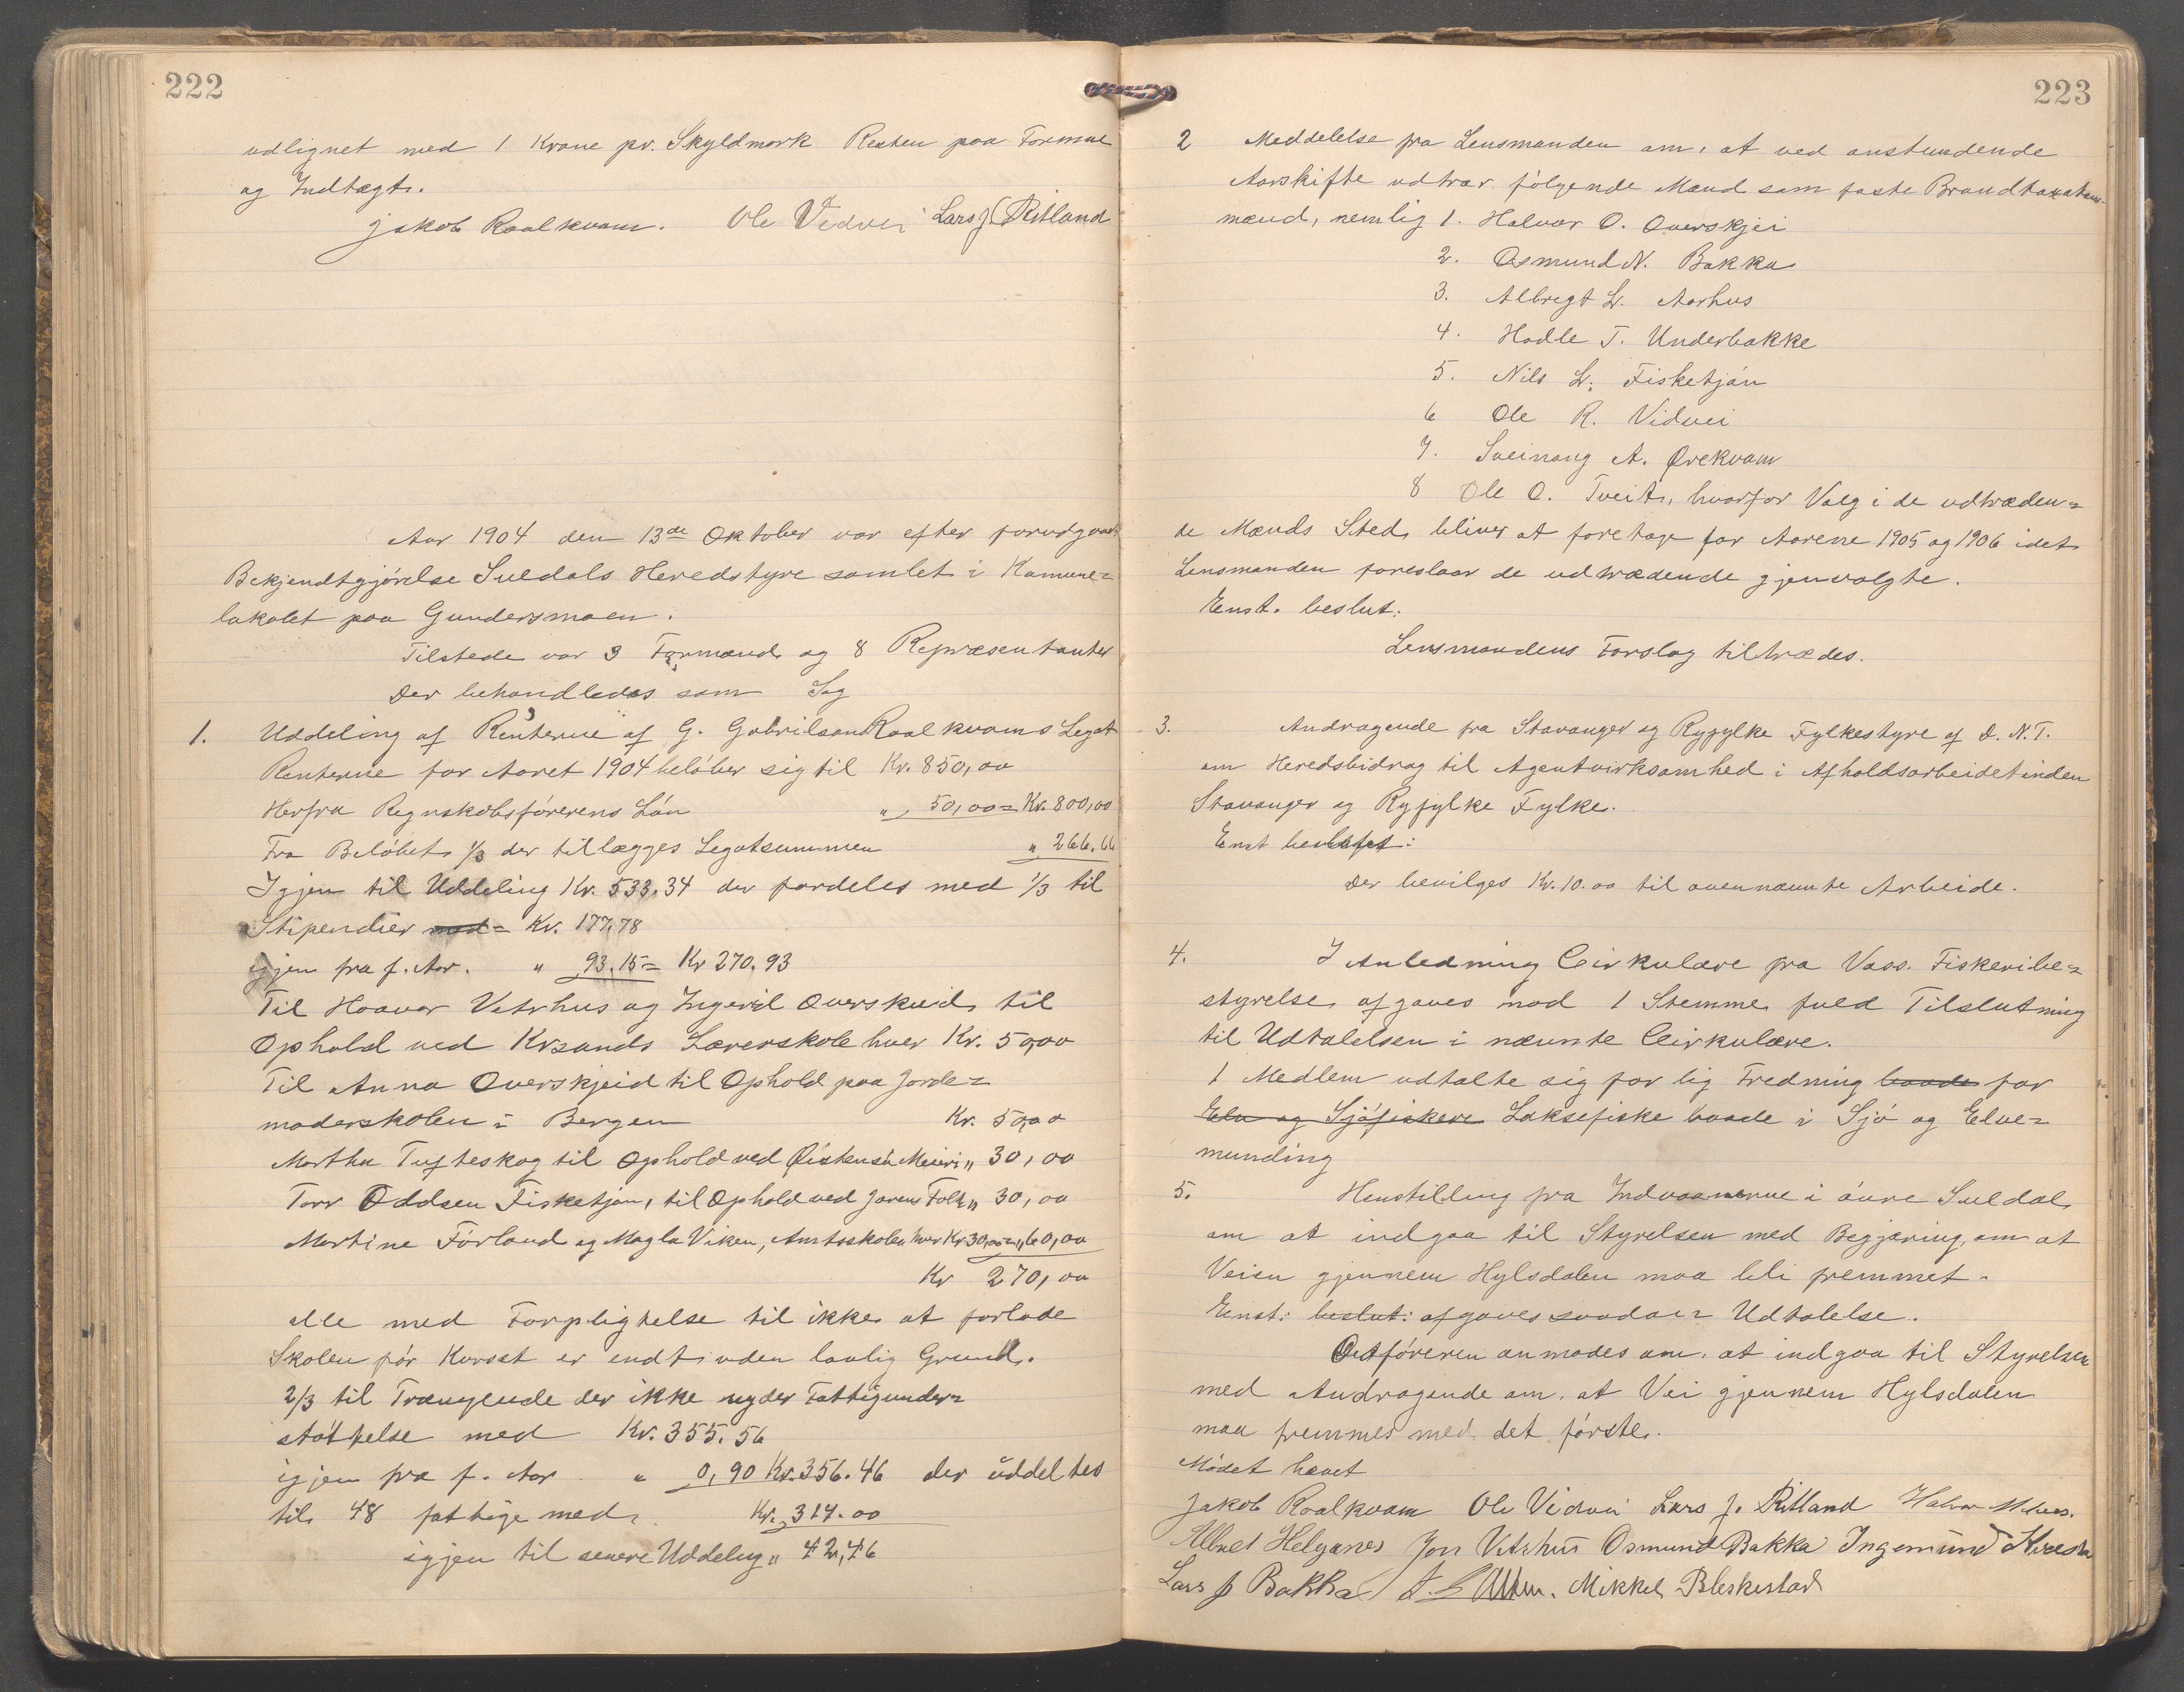 222
udlignet med 1 Krone pr. Skyldmark Resten paa Formue
og Indtægt.
Jakob Roalkvam. Ole Vedvei Lars J. Ritland
Aar 1904 den 13de Oktober var efter forudgaaet
Bekjendtgjørelse Suldals Heredstyre samlet i Kamune-
lokalet paa Gundersmoen.
Tilstede var 3 Formænd og 8 Repræsentanter
Der behandledes som Sag
1. Uddeling af Renterne af G. Gabrilsen Roalkvams Legat
Renterne for Aaret 1904 beløber sig til Kr. 850,00
Herfra Regnskabsførerens Løn " 50,00 = Kr. 800,00
Fra Beløbet 1/3 der tillægges Legatsummen " 266.66
Igjen til Uddeling Kr. 533.34 der fordeles med 1/3 til
Stipendier med = Kr. 177.78
igjen fra f. Aar. " 93.15 = Kr 270.93
Til Hoavar Vetrhus og Ingeril Overskeid til
Ophold ved Krsands Lærerskole hver Kr. 50,00
Til Anna Overskjeid til Ophold paa Jorde-
moderskolen i Bergen Kr. 50,00
Martha Tufteskog til Ophold ved Øistensø Meieri " 30,00
Torr Oddsen Fisketjøn, til Ophold ved Jærens Folk " 30,00
Martine Førland og Magla Viken, Amtsskolen hver Kr 30,00 = " 60,00
Kr 270,00
alle med Forpligtelse til ikke at forlade
Skolen før Kurset er endt uden lovlig Grund.
2/3 til Trængende der ikke nyder Fattigunder-
støttelse med Kr. 355.56
igjen fra f. Aar " 0,90 Kr. 356.46 der uddeltes
til 48 fattige med Kr. 314.00
igjen til senere Uddeling " 42,46
223
2 Meddelelse fra Lensmanden om, at ved anstundende
Aarskifte udtrær følgende Mænd som faste Brandtaxations-
mænd, nemlig 1. Halvor O. Overskjei
2. Osmund N. Bakka
3. Albregt L. Aarhus
4. Hadle T. Underbakke
5. Nils L. Fisketjøn
6 Ole R. Vidvei
7. Sveinang A. Ørekvam
8 Ole O. Tveit, hvorfor Valg i de udtræden-
de Mænds Sted bliver at foretage for Aarene 1905 og 1906 idet
Lensmanden foreslaar de udtrædende gjenvalgte.
Enst. beslut:
Lensmandens Forslag tiltrædes.
3. Andragende fra Stavanger og Ryfylke Fylkestyre af D. N. T.
om Heredsbidrag til Agentvirksamhed i Afholdsarbeidet inden
Stavanger og Ryfylke Fylke.
Enst besluttet:
Der bevilges Kr. 10.00 til ovennævnte Arbeide.
4. I Anledning Cirkulære fra Vass. Fiskeribe-
styrelse afgaves mod 1 Stemme fuld Tilslutning
til Udtalelsen i nævnte Cirkulære.
1 Medlem udtalte sig for lig Fredning baade for
Elv og Sjøfiskere Laksefiske baade i Sjø og Elve-
munding
5. Henstilling fra Indvaanerne i øvre Suldal
om at indgaa til Styrelsen med Begjæring om at
Veien gjennem Hylsdalen maa bli fremmet.
Enst: beslut: afgaves saadan Udtalelse.
Ordføreren anmodes om at indgaa til Styrelsen
med Andragende om at Vei gjennem Hylsdalen
maa fremmes med det første.
Mødet hævet
Jakob Roalkvam Ole Vidvei Lars J. Ritland
Helganes Jon Vetrhus Osmund Bakka Ingemund
Lars J Bakka Mikkel Bleskestad